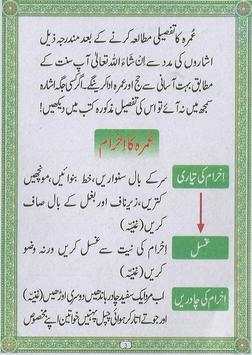 عمرہ کا تفصیلی مطالعہ کرنے کے بعد مندرجہ ذیل
اشاروں کی مدد سے ان شاء اللہ تعالیٰ آپ سنت کے
مطابق بہت آسانی سے حج اور عمرہ ادا کریں گے۔ اگر کسی جگہ اشارہ
سمجھ میں نہ آئے تو اس کی تفصیل مذکورہ کتب میں دیکھیں!
عمرہ کا احرام
احرام کی تیاری
سر کے بال سنواریں، خط بنوائیں، مونچھیں
کتریں، زیر ناف اور بغل کے بال صاف
کریں (غنیہ)
غسل
احرام کی نیت سے غسل کریں ورنہ وضو
کریں (غنیہ)
احرام کی چادریں
اب مرد ایک سفید چادر باندھیں دوسری اوڑھیں (غنیہ)
اور جوتے اتار کر ہوائی چپل پہنیں خواتین اپنے مخصوص